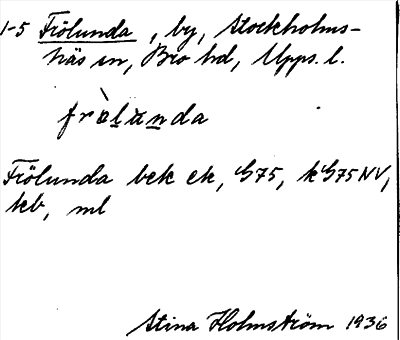 1-5 Frölunda, by, Stockholms-
näs sn, Bro hd, Upps. l.
fròlunda
Frölunda bek ek, G75, kG75NV,
kb, ml
Stina Holmström 1936